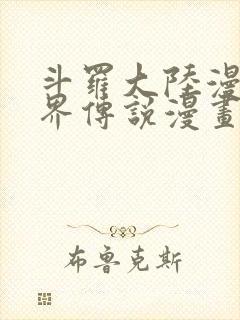 斗羅大陸漫
界傳說漫畫
布魯克斯